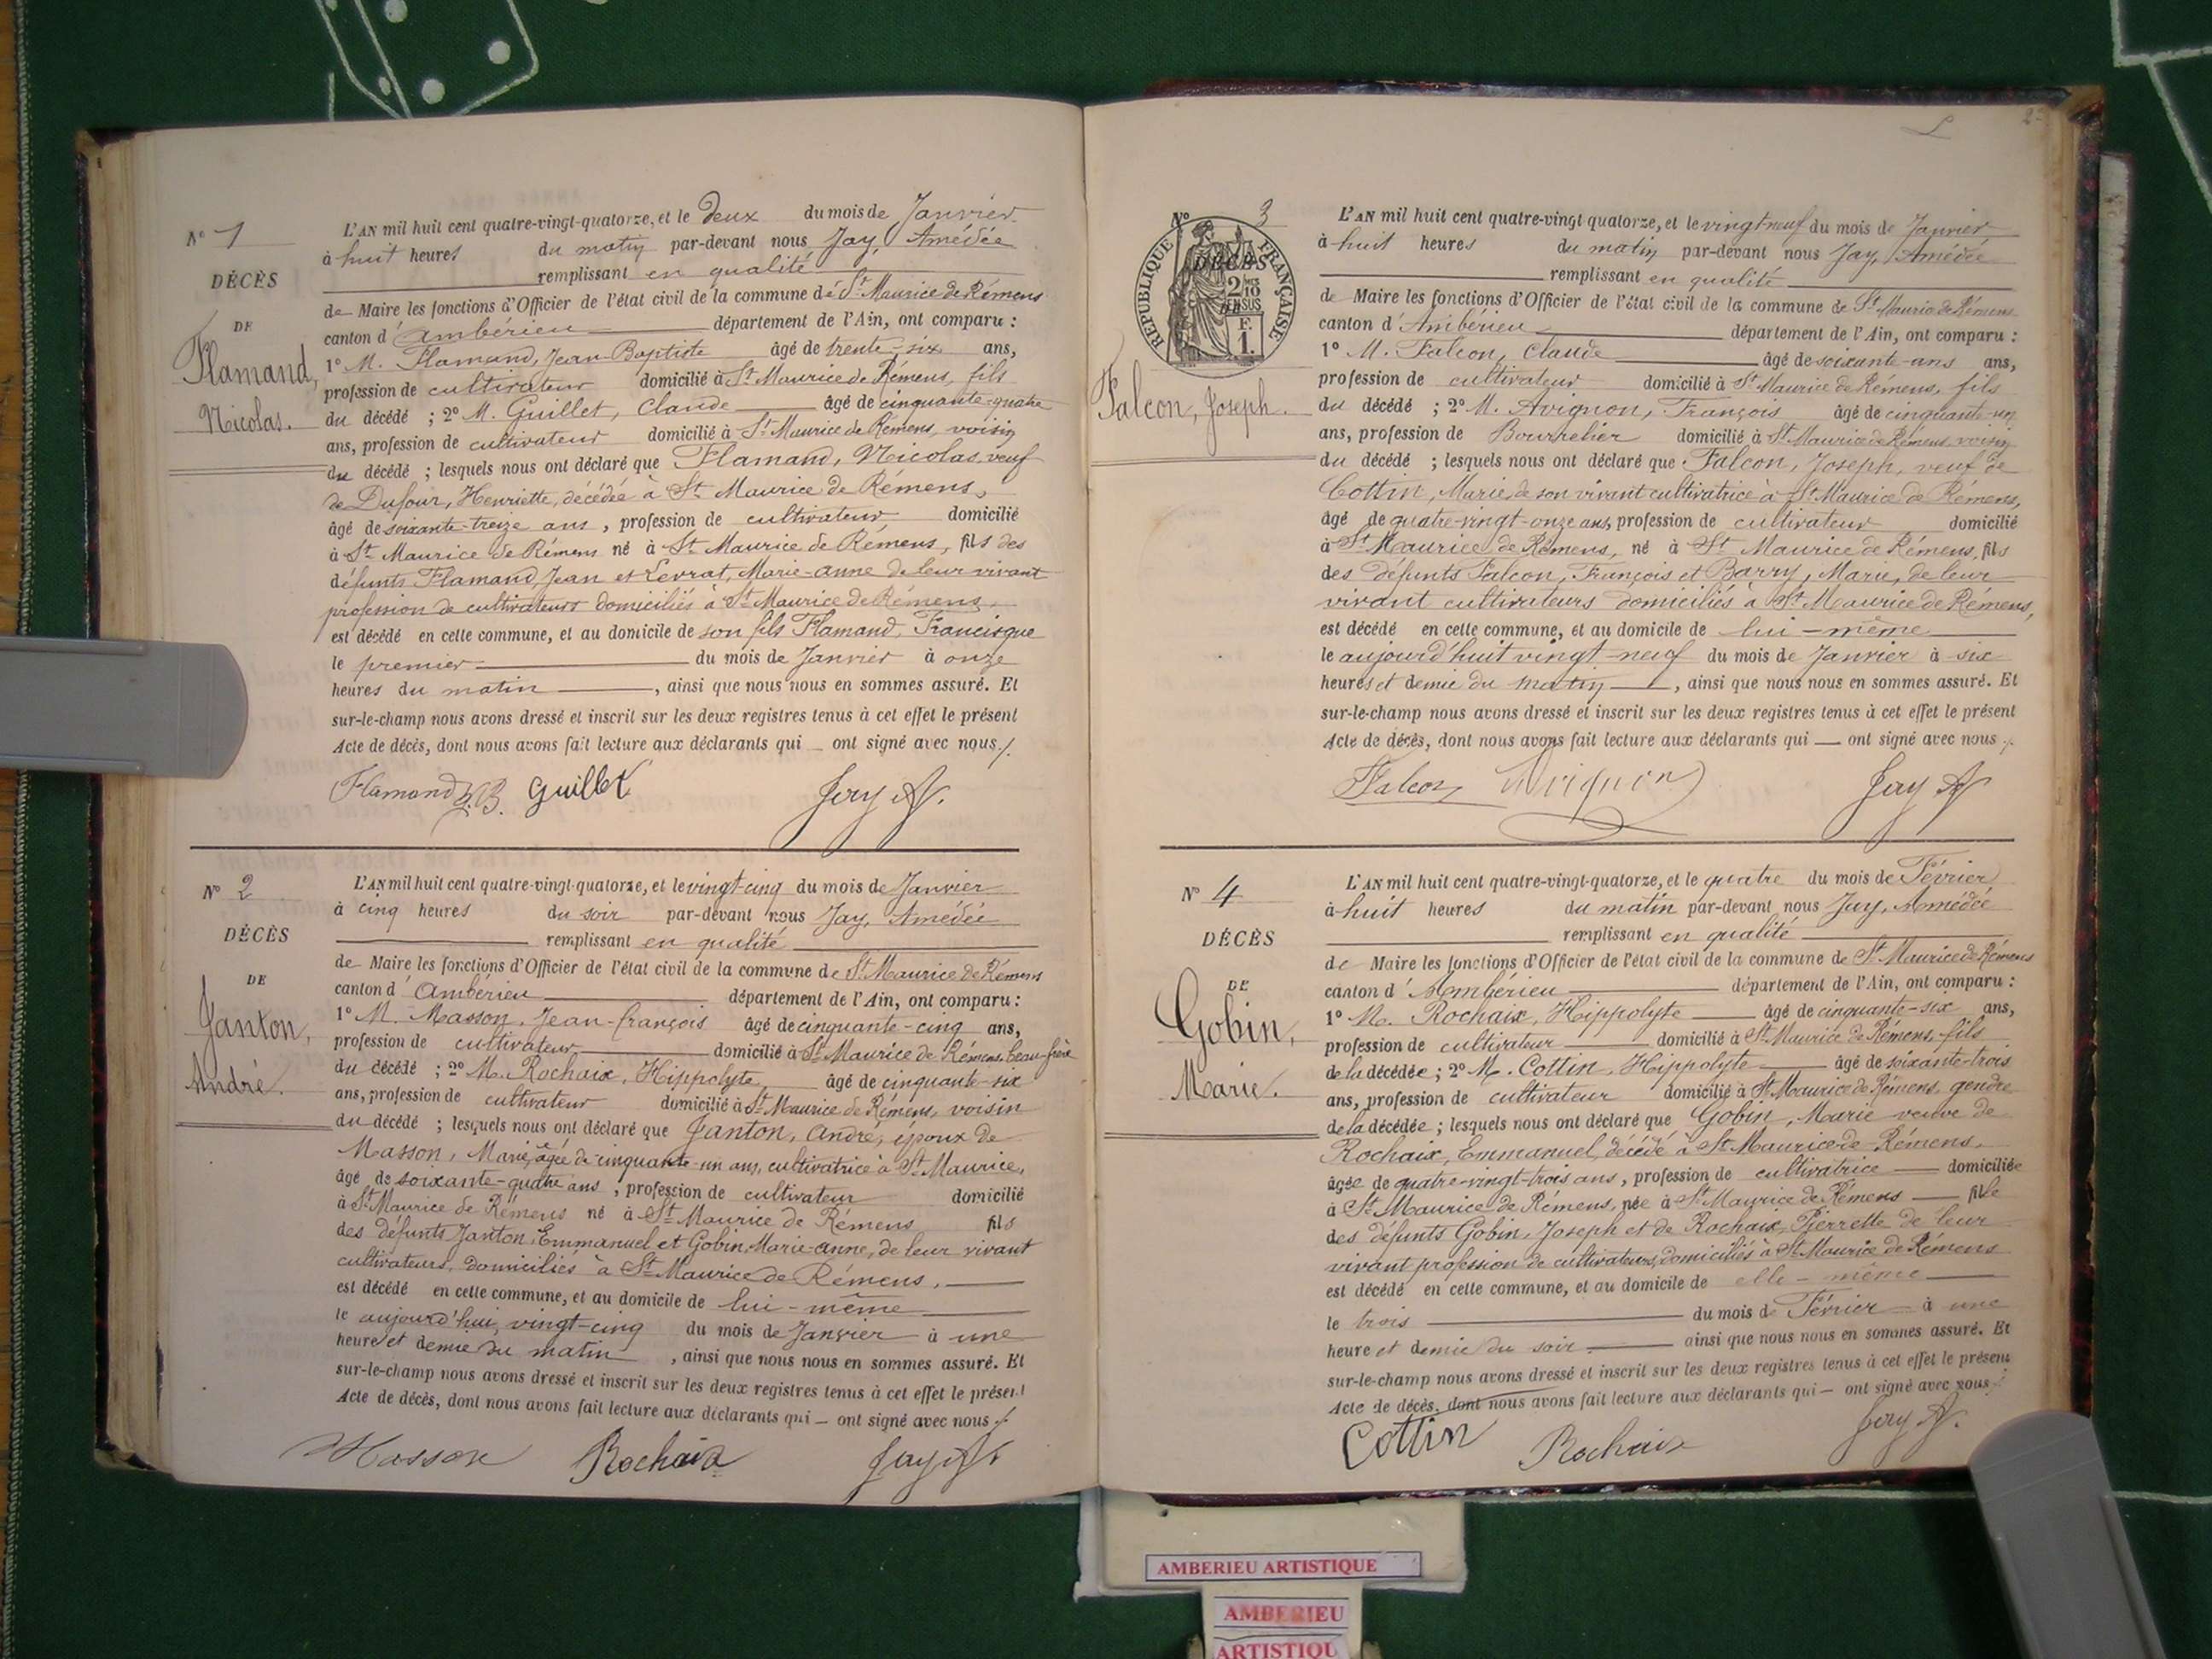 N° 1
DÉCÈS
DE
Flamand,
Nicolas.
L'AN mil huit cent quatre-vingt-quatorze, et le deux du mois de Janvier
à huit heures du matin par-devant nous Jay, Amédée
remplissant en qualité
de Maire les fonctions d'Officier de l'état civil de la commune de St Maurice de Rémens
canton d'Ambérieu département de l'Ain, ont comparu :
1° M. Flamand, Jean-Baptiste âgé de trente-six ans,
profession de cultivateur domicilié à St Maurice de Rémens, fils
du décédé ; 2° M. Guillet, Claude âgé de cinquante-quatre
ans, profession de cultivateur domicilié à St Maurice de Rémens, voisin
du décédé ; lesquels nous ont déclaré que Flamand, Nicolas, veuf
de Dufour, Henriette, décédée à St Maurice de Rémens,
âgé de soixante-treize ans, profession de cultivateur domicilié
à St Maurice de Rémens né à St Maurice de Rémens, fils des
défunts Flamand, Jean et Levrat, Marie-Anne de leur vivant
profession de cultivateurs domiciliés à St Maurice de Rémens,
est décédé en cette commune, et au domicile de son fils Flamand, Francisque
le premier du mois de Janvier à onze
heures du matin, ainsi que nous nous en sommes assuré. Et
sur-le-champ nous avons dressé et inscrit sur les deux registres tenus à cet effet le présent
Acte de décès, dont nous avons fait lecture aux déclarants qui ont signé avec nous.
Flamand J.B. Guillet Jay A.
N° 2
DÉCÈS
DE
Janton,
André.
L'AN mil huit cent quatre-vingt-quatorze, et le vingt-cinq du mois de Janvier
à cinq heures du soir par-devant nous Jay, Amédée
remplissant en qualité
de Maire les fonctions d'Officier de l'état civil de la commune de St Maurice de Rémens
canton d'Ambérieu département de l'Ain, ont comparu :
1° M. Masson, Jean-François âgé de cinquante-cinq ans,
profession de cultivateur domicilié à St Maurice de Rémens, beau-frère
du décédé ; 2° M. Rochaix, Hippolyte, âgé de cinquante-six
ans, profession de cultivateur domicilié à St Maurice de Rémens, voisin
du décédé ; lesquels nous ont déclaré que Janton, André, époux de
Masson, Marie, âgée de cinquante-un ans, cultivatrice à St Maurice,
âgé de soixante-quatre ans, profession de cultivateur domicilié
à St Maurice de Rémens né à St Maurice de Rémens fils
des défunts Janton, Emmanuel et Gobin, Marie-Anne, de leur vivant
cultivateurs, domiciliés à St Maurice de Rémens,
est décédé en cette commune, et au domicile de lui-même
le aujourd'hui, vingt-cinq du mois de Janvier à une
heure et demie du matin, ainsi que nous nous en sommes assuré. Et
sur-le-champ nous avons dressé et inscrit sur les deux registres tenus à cet effet le présent
Acte de décès, dont nous avons fait lecture aux déclarants qui ont signé avec nous.
Masson Rochaix Jay A.
2
N° 3
DÉCÈS
RÉPUBLIQUE FRANÇAISE
2/10 EN SUS
F. 1.
Falcon, Joseph.
L'AN mil huit cent quatre-vingt-quatorze, et le vingt neuf du mois de Janvier
à huit heures du matin par-devant nous Jay, Amédée
remplissant en qualité
de Maire les fonctions d'Officier de l'état civil de la commune de St Maurice de Rémens
canton d'Ambérieu département de l'Ain, ont comparu :
1° M. Falcon, Claude âgé de soixante-ans ans,
profession de cultivateur domicilié à St Maurice de Rémens, fils
du décédé ; 2° M. Avignon, François âgé de cinquante-un
ans, profession de Bourrelier domicilié à St Maurice de Rémens, voisin
du décédé ; lesquels nous ont déclaré que Falcon, Joseph, veuf de
Cottin, Marie, de son vivant cultivatrice à St Maurice de Rémens,
âgé de quatre-vingt-onze ans, profession de cultivateur domicilié
à St Maurice de Rémens, né à St Maurice de Rémens, fils
des défunts Falcon, François et Barry, Marie, de leur
vivant cultivateurs domiciliés à St Maurice de Rémens,
est décédé en cette commune, et au domicile de lui-même
le aujourd'huit vingt-neuf du mois de Janvier à six
heures et demie du matin, ainsi que nous nous en sommes assuré. Et
sur-le-champ nous avons dressé et inscrit sur les deux registres tenus à cet effet le présent
Acte de décès, dont nous avons fait lecture aux déclarants qui ont signé avec nous.
Falcon Avignon Jay A
N° 4
DÉCÈS
DE
Gobin,
Marie.
L'AN mil huit cent quatre-vingt-quatorze, et le quatre du mois de Février
à huit heures du matin par-devant nous Jay, Amédée
remplissant en qualité
de Maire les fonctions d'Officier de l'état civil de la commune de St Maurice de Rémens
canton d'Ambérieu département de l'Ain, ont comparu :
1° M. Rochaix, Hippolyte âgé de cinquante-six ans,
profession de cultivateur domicilié à St Maurice de Rémens, fils
de la décédée ; 2° M. Cottin, Hippolyte âgé de soixante-trois
ans, profession de cultivateur domicilié à St Maurice de Rémens, gendre
de la décédée ; lesquels nous ont déclaré que Gobin, Marie veuve de
Rochaix, Emmanuel, décédé à St Maurice de Rémens,
âgée de quatre-vingt-trois ans, profession de cultivatrice domiciliée
à St Maurice de Rémens, née à St Maurice de Rémens fille
des défunts Gobin, Joseph et de Rochaix, Pierrette de leur
vivant profession de cultivateurs, domiciliés à St Maurice de Rémens
est décédé en cette commune, et au domicile de elle-même
le trois du mois de Février à une
heure et demie du soir ainsi que nous nous en sommes assuré. Et
sur-le-champ nous avons dressé et inscrit sur les deux registres tenus à cet effet le présent
Acte de décès, dont nous avons fait lecture aux déclarants qui ont signé avec nous.
Cottin Rochaix Jay A.
AMBERIEU ARTISTIQUE
AMBERIEU
ARTISTIQU